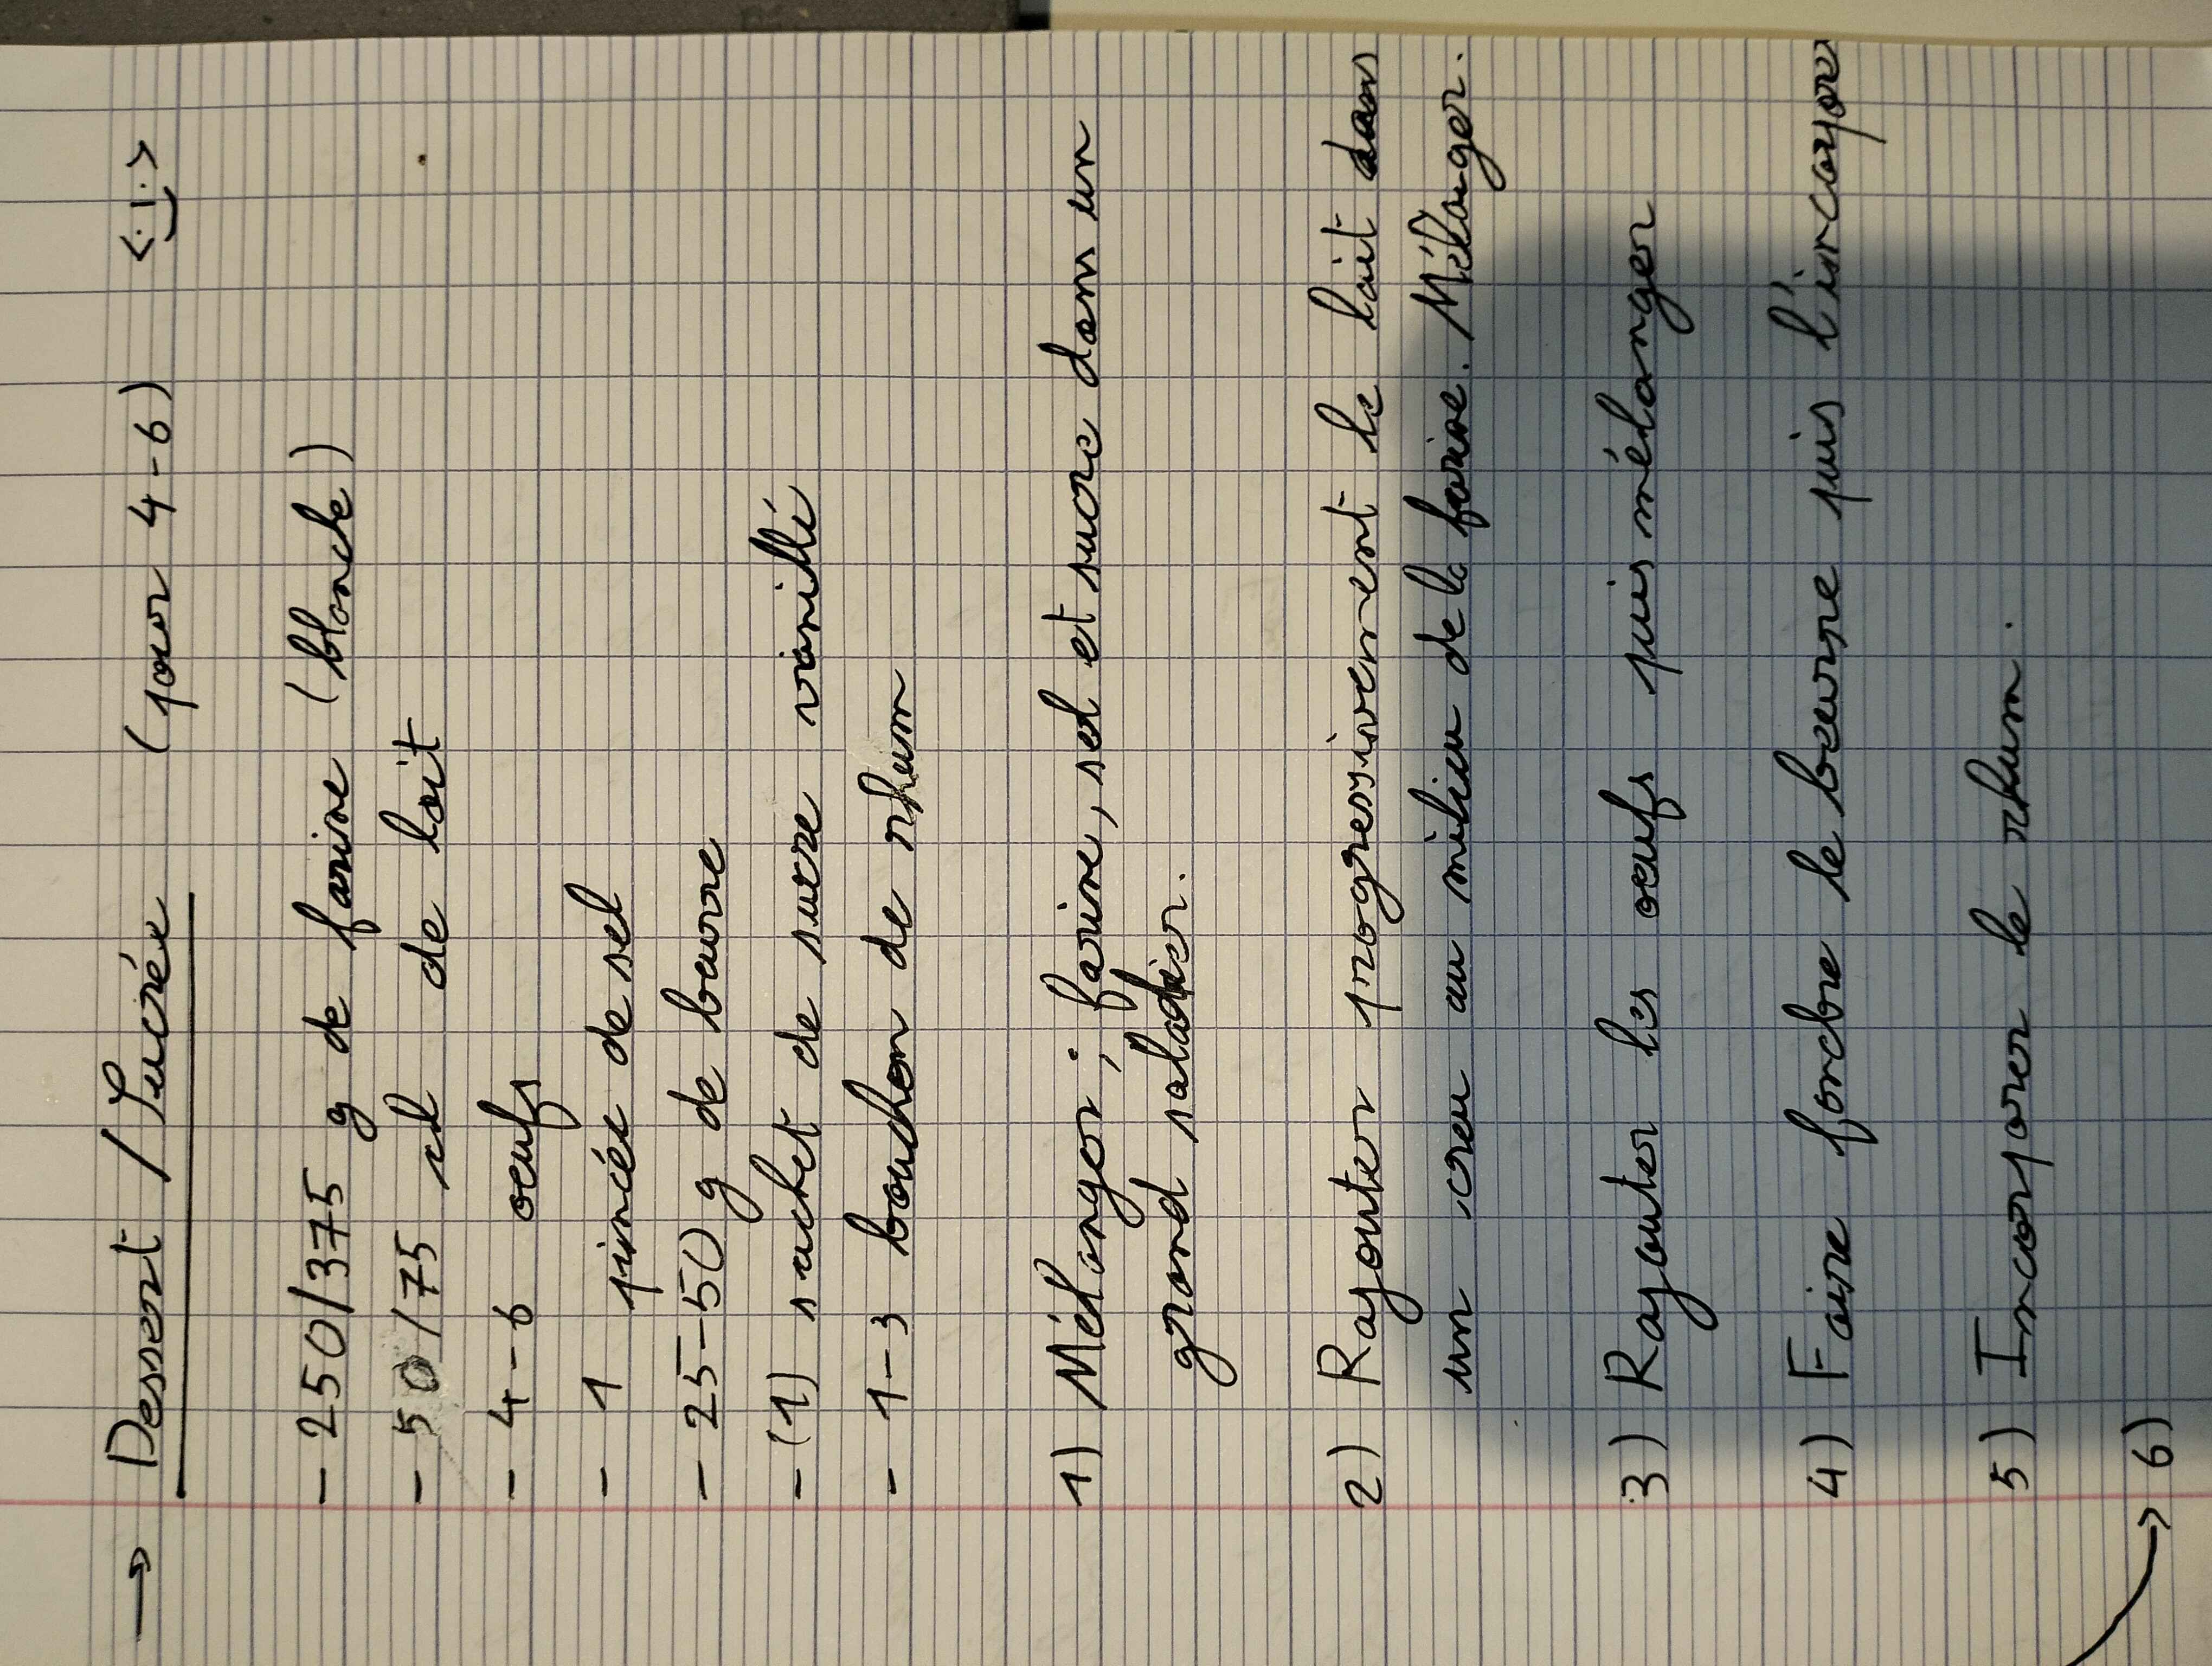 → Dessert / Sucrée (pour 4-6) <·i·>
- 250/375 g de farine (blanche)
- 50/75 cl de lait
- 4-6 oeufs
- 1 pincée de sel
- 25-50 g de beurre
- (1) sachet de sucre vanillé
- 1-3 bouchon de rhum
1) Mélanger ; farine, sel et sucre dans un
grand saladier.
2) Rajouter progressivement le lait dans
un creu au milieu de la farine. Mélanger.
3) Rajouter les oeufs puis mélanger
4) Faire fondre le beurre puis l'incorporer
5) Incorporer le rhum.
→ 6)